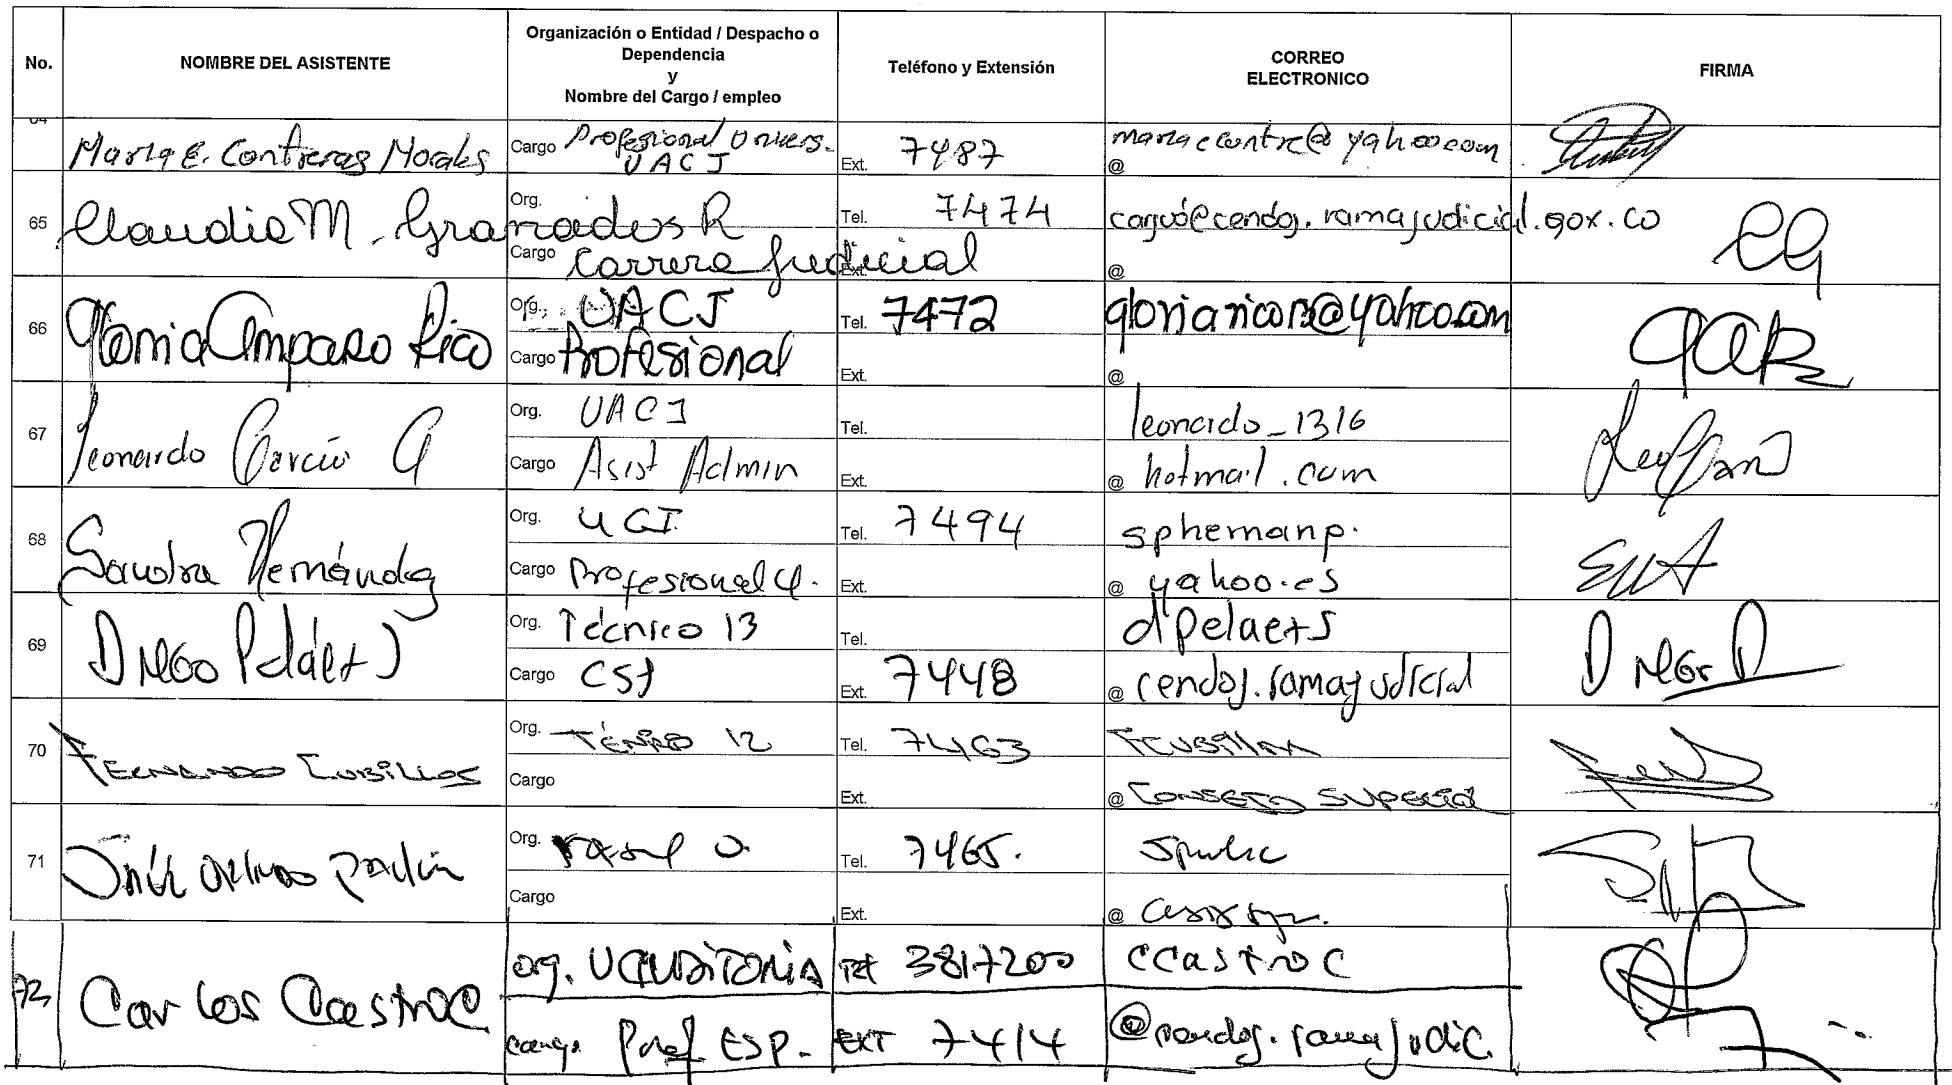 No.
NOMBRE DEL ASISTENTE
Organización o Entidad / Despacho o
Dependencia
y
Nombre del Cargo / empleo
Teléfono y Extensión
CORREO
ELECTRONICO
FIRMA
64
Maria E. Contreras Morales
Cargo Profesional Univers.
UACJ
Ext. 7487
mariaecontre@yahoo.com
@
65
Claudia M. Granados R
Org.
Cargo Carrera Judicial
Tel. 7474
Ext.
@cendoj.ramajudicial.gov.co
@
66
Gloria Amparo Rico
Org. UACJ
Cargo Profesional
Tel. 7472
Ext.
gloriaricor@yahoo.com
@
67
Leonardo García G
Org. UACJ
Cargo Asist Admin
Tel.
Ext.
leonardo_1316
@ hotmail.com
68
Sandra Hernández
Org. UCJ
Cargo Profesional U.
Tel. 7494
Ext.
sphernanp.
@ yahoo.es
69
Diego Peláez J
Org. Técnico 13
Cargo CSJ
Tel.
Ext. 7448
dpelaezs
@ cendoj.ramajudicial
70
Fernando Cubillos
Org. Ténico 12
Cargo
Tel. 7463
Ext.
Fcubillm
@ Consejo Superior
71
Org.
Cargo
Tel. 7465.
Ext.
@
72
Carlos Castro C
Org. U Auditoria
Cargo Prof ESP.
Tel 3817200
EXT 7414
ccastroc
@cendoj.ramajudic.